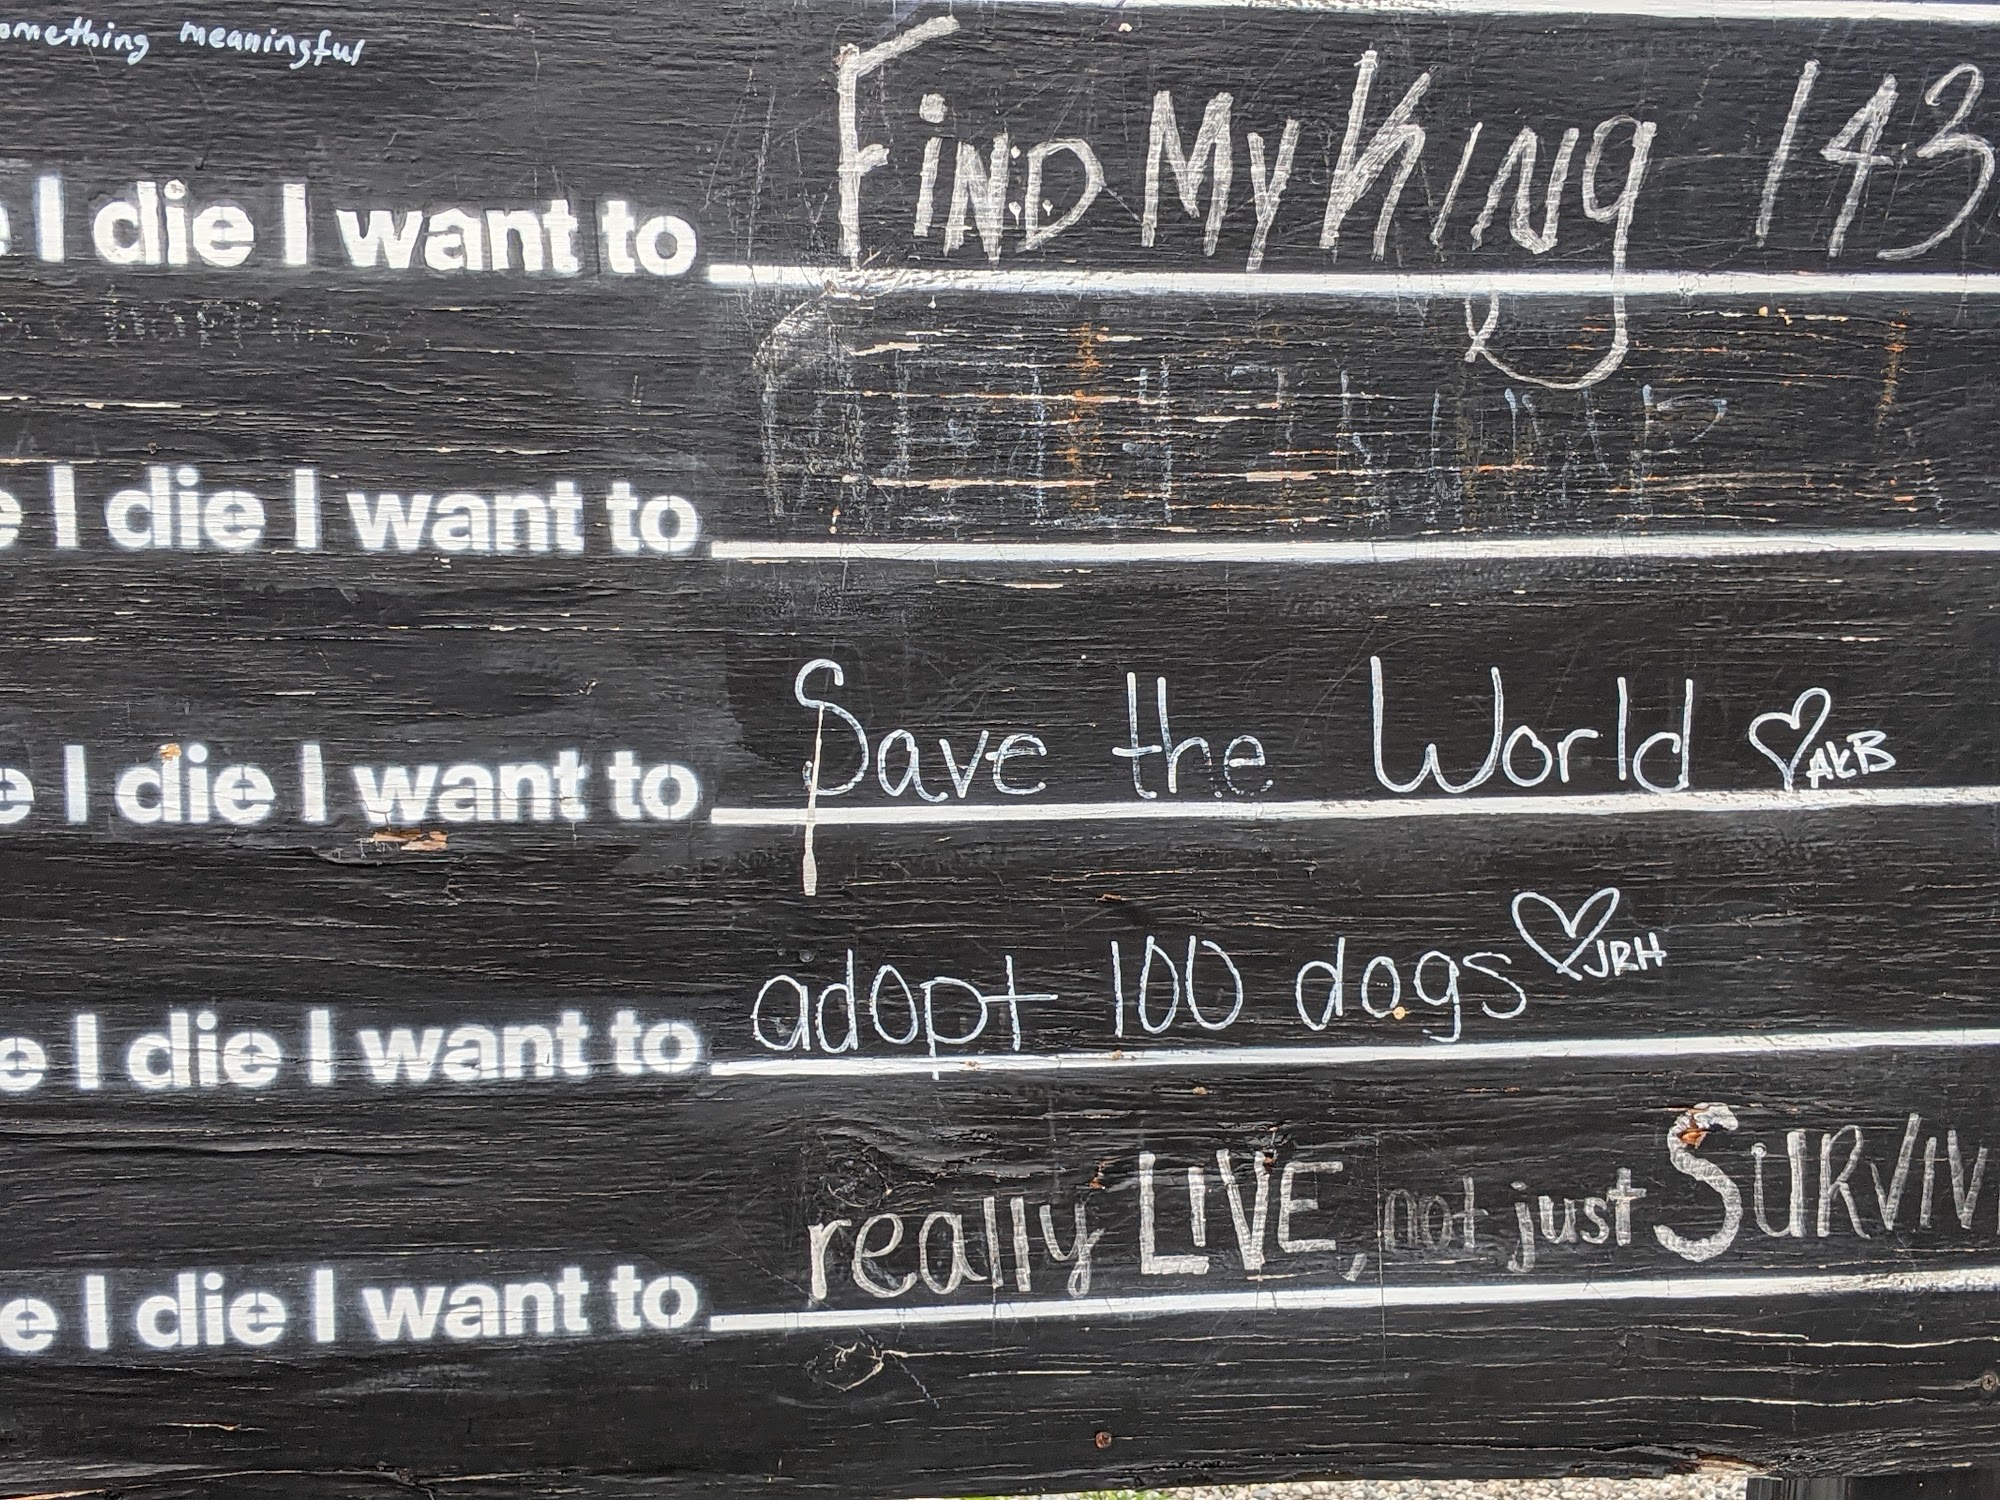 omething meaningful
e I die I want to Find My King 143
e I die I want to
e I die I want to Save the World ♡ AKB
e I die I want to adopt 100 dogs ♡ JRH
e I die I want to really LIVE, not just SURVIV